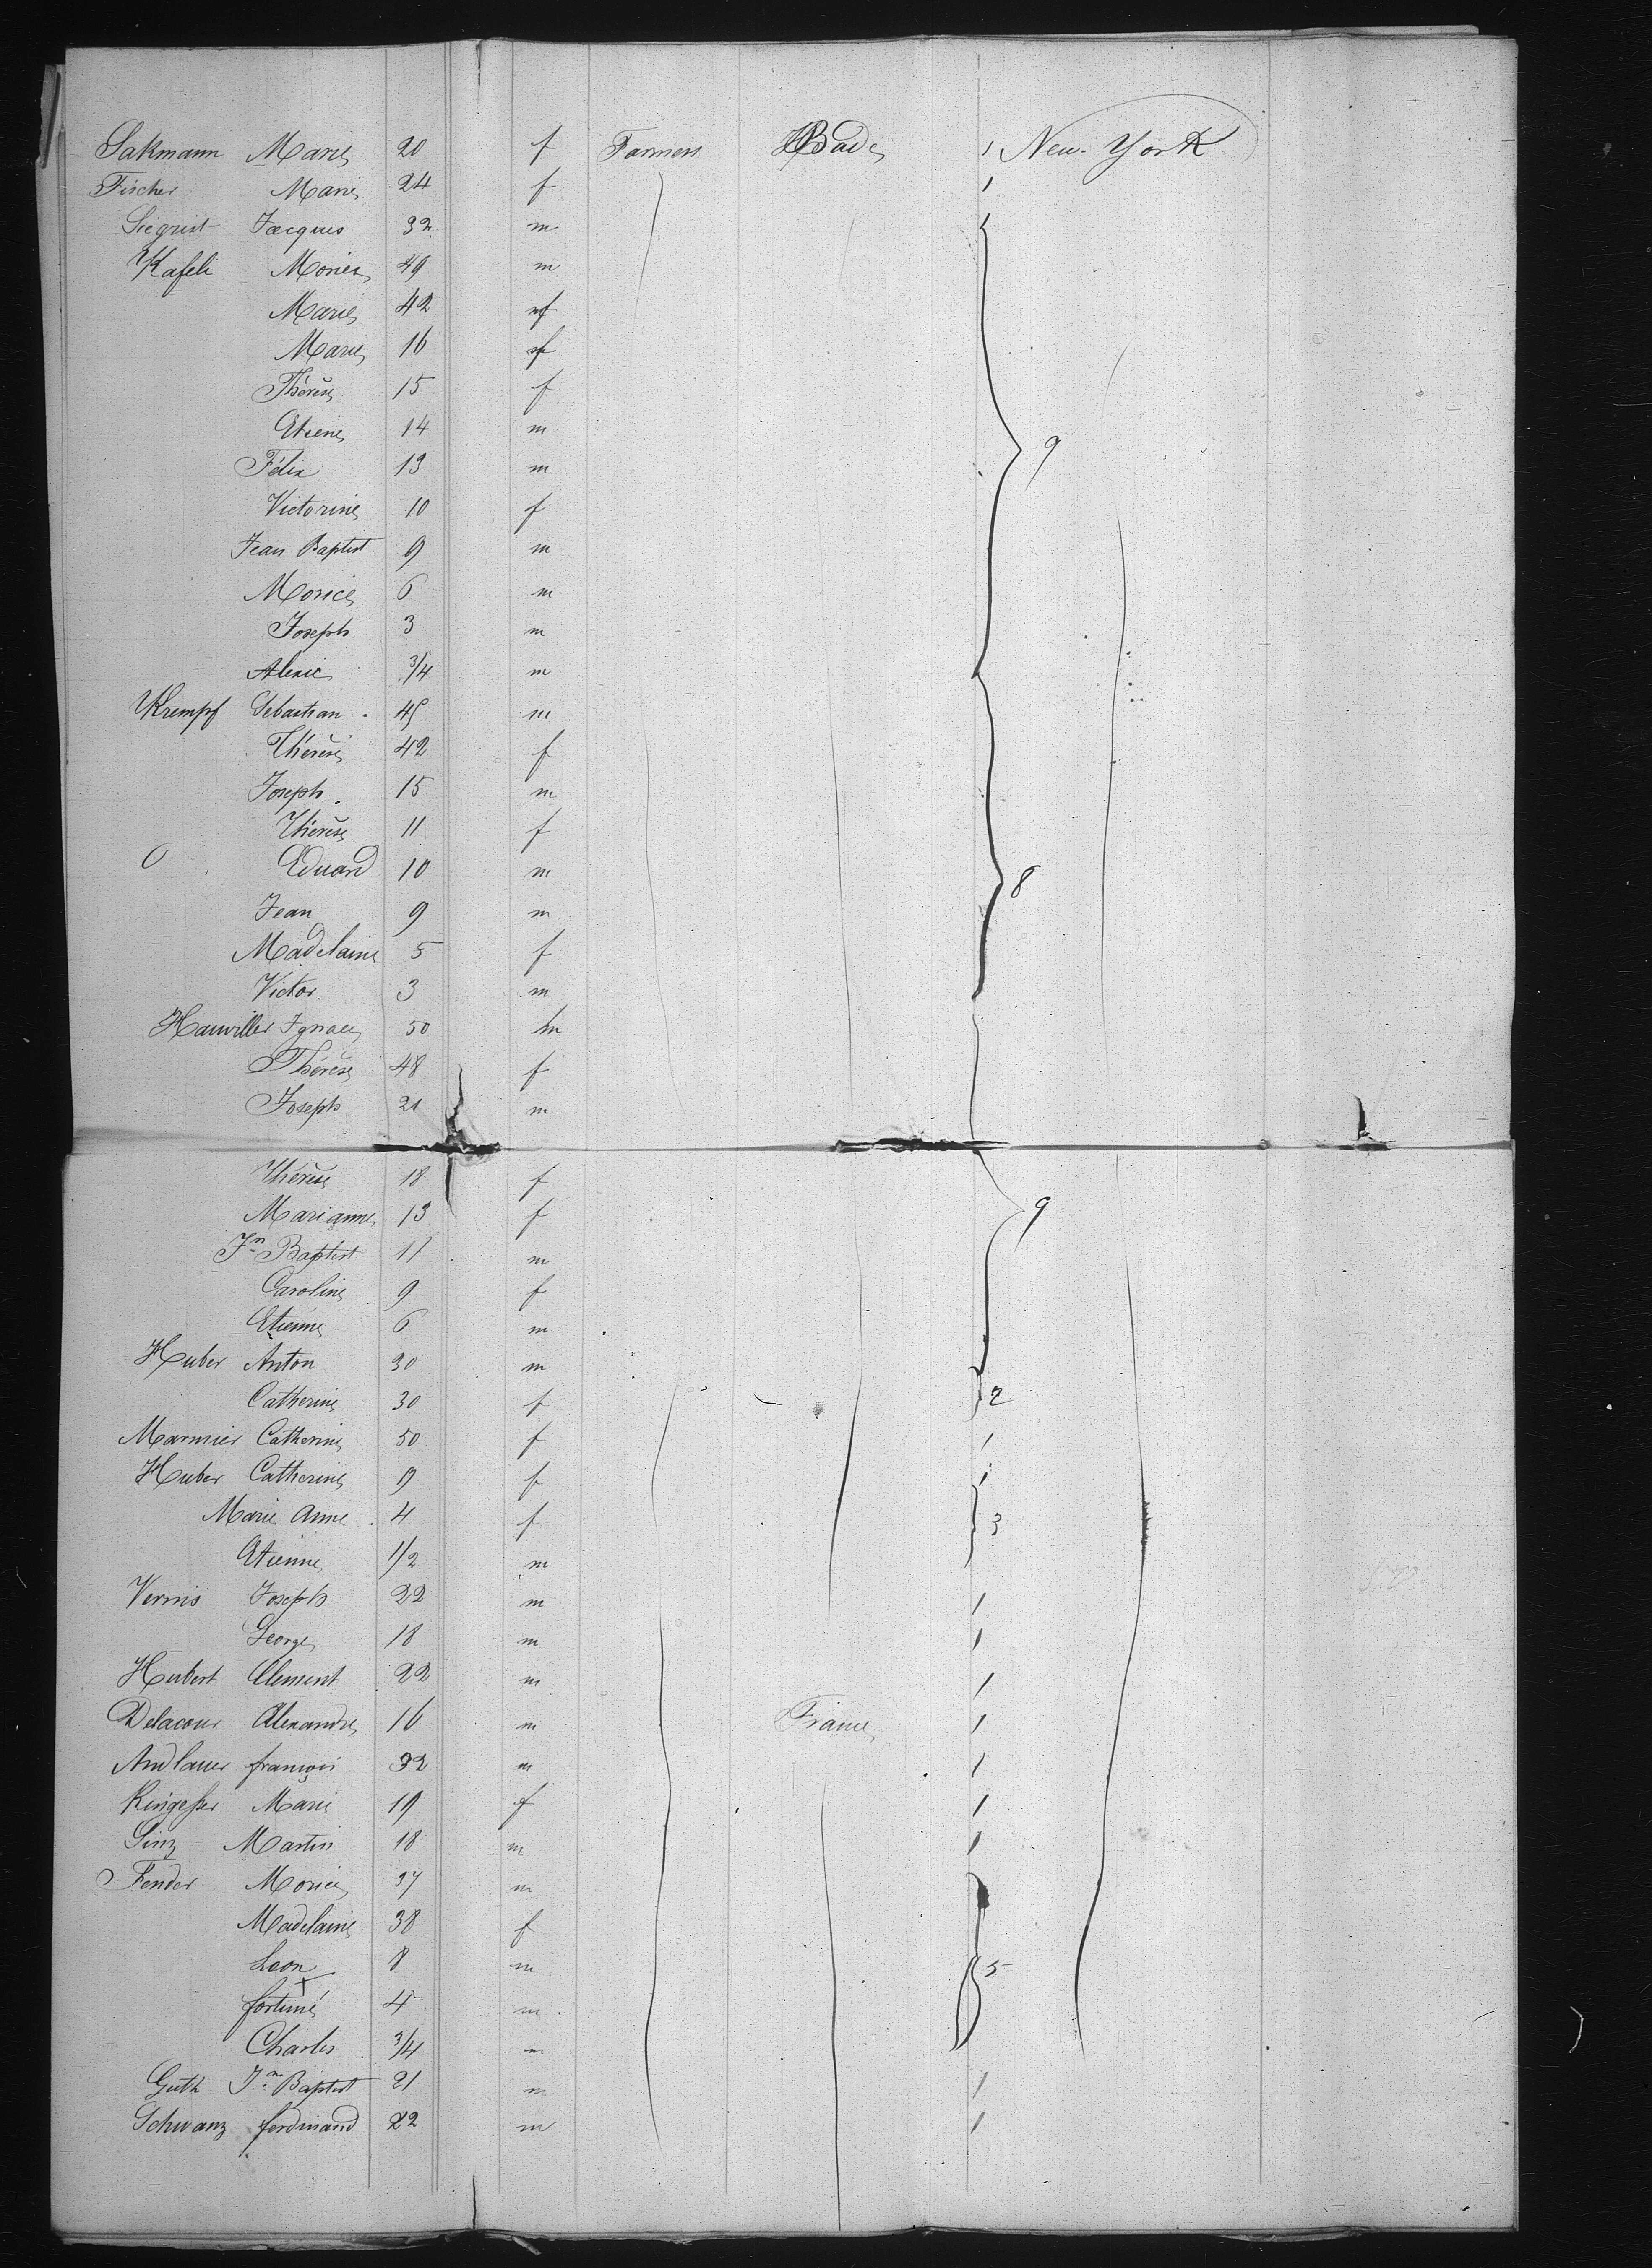 Sakmann Marie 20 f Farmers Bade 1 New-York
Fischer Marie 24 f 1
Siegrist Jacques 32 m
Kafeli Morice 49 m
Marie 42 f
Marie 16 f
Thérèse 15 f
Etiene 14 m
Félix 13 m 9
Victorine 10 f
Jean Baptist 9 m
Morice 6 m
Joseph 3 m
Alexic 3/4 m
Krempf Sebastian 45 m
Thérèse 42 f
Joseph 15 m
Thérèse 11 f
Eduard 10 m 8
Jean 9 m
Madelaine 5 f
Victor 3 m
Hauwiller Ignace 50 m
Thérèse 48 f
Joseph 21 m
Thérèse 18 f
Marianne 13 f 9
Jn Baptist 11 m
Caroline 9 f
Etienne 6 m
Huber Anton 30 m
Catherine 30 f 2
Marmier Catherine 50 f 1
Huber Catherine 9 f
Marie Anne 4 f 3
Etienne 1/2 m
Vernis Joseph 22 m 1
George 18 m 1
Hubert Clement 22 m 1
Delacour Alexandre 16 m France 1
Andlauer françois 32 m 1
Ringesser Marie 19 f 1
Sinz Martin 18 m 1
Fender Morice 37 m
Madelaine 38 f
Leon 8 m 5
fortuné 4 m
Charles 3/4 m
Guth Jn Baptist 21 m 1
Schwanz ferdinand 22 m 1